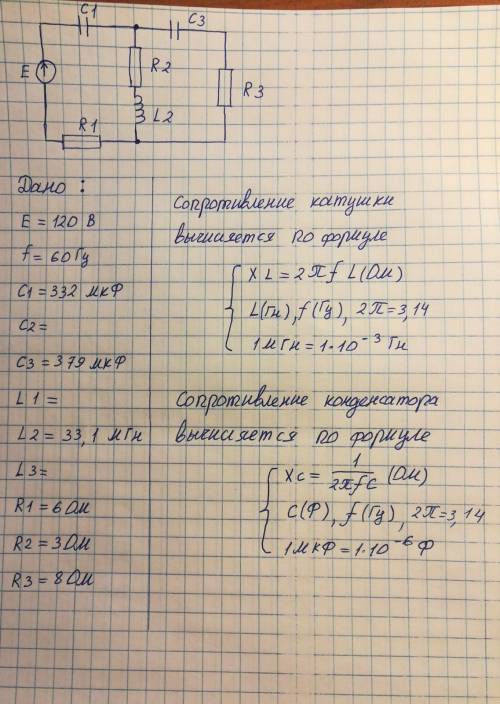 C1
C3
E
R2
R3
L2
R1
Дано :
E = 120 В
f = 60 Гц
C1 = 332 мкФ
C2 =
C3 = 379 мкФ
L1 =
L2 = 33,1 мГн
L3 =
R1 = 6 Ом
R2 = 3 Ом
R3 = 8 Ом
Сопротивление катушки
вычисяется по формуле
XL = 2πf L (Ом)
L(Гн), f(Гц), 2π = 3,14
1 мГн = 1·10⁻³ Гн
Сопротивление конденсатора
вычисяется по формуле
Xc = 1/2πfC (Ом)
C(Ф), f(Гц), 2π = 3,14
1 мкФ = 1·10⁻⁶ Ф